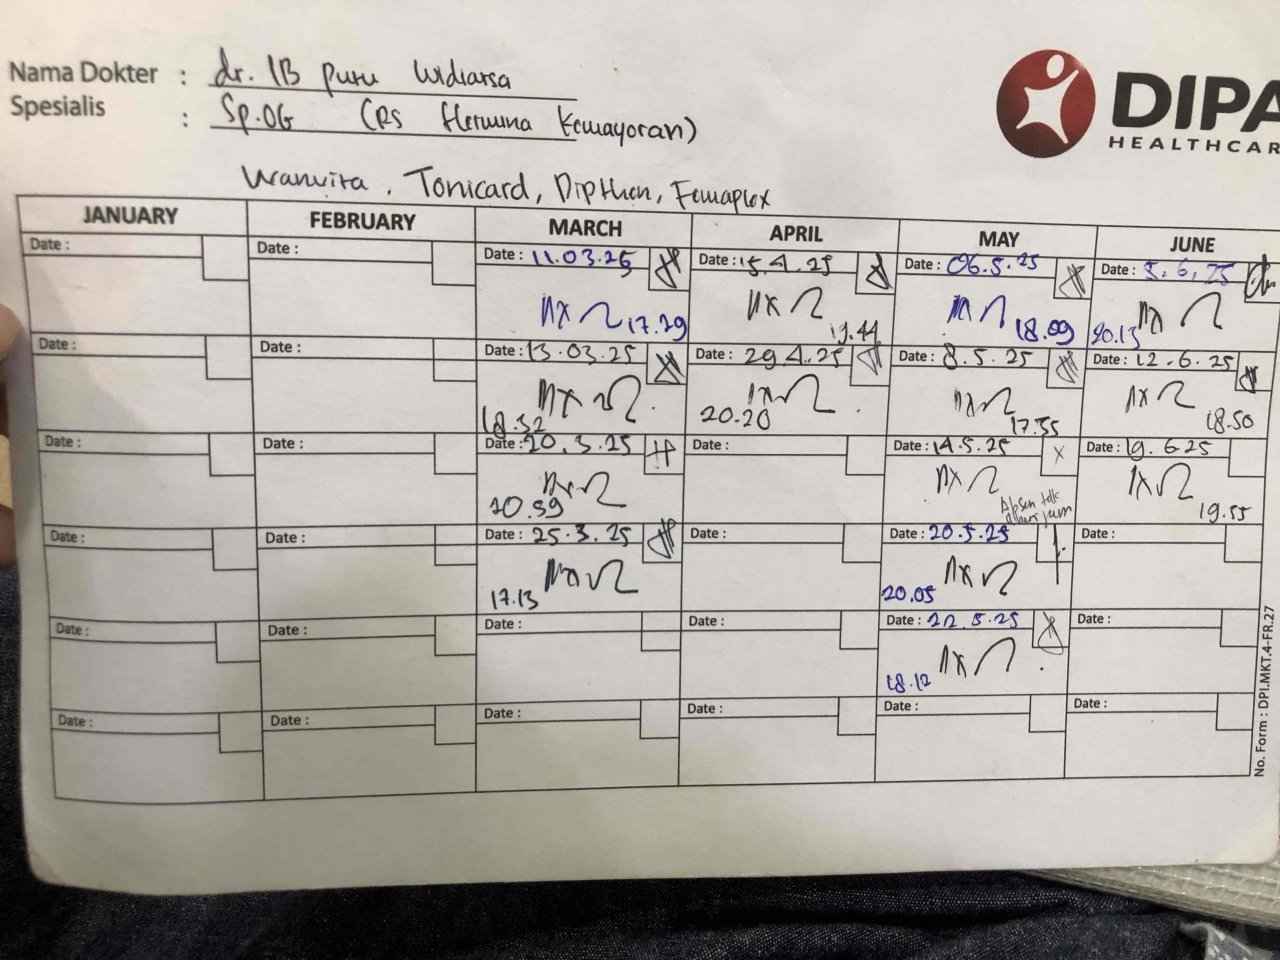 Nama Dokter : dr. IB Putu Widiarsa
Spesialis : Sp.OG (RS Hermina Kemayoran)
DIPA
HEALTHCAR
Wanvita, Tonicard, Dipthen, Femaplex
JANUARY FEBRUARY MARCH APRIL MAY JUNE
Date : Date : Date : 11.03.25 Date : 15.4.25 Date : 06.5.25 Date : 5.6.25
17.29 19.44 18.09 20.13
Date : Date : Date : 13.03.25 Date : 29.4.25 Date : 8.5.25 Date : 12.6.25
18.32 20.20 17.55 18.50
Date : Date : Date : 20.3.25 Date : Date : 14.5.25 Date : 19.6.25
20.59 19.55
Date : Date : Date : 25.3.25 Date : Date : 20.5.25 Date :
17.13 20.05
Date : Date : Date : Date : Date : 22.5.25 Date :
18.12
Date : Date : Date : Date : Date : Date :
No. Form : DPI.MKT.4-FR.27